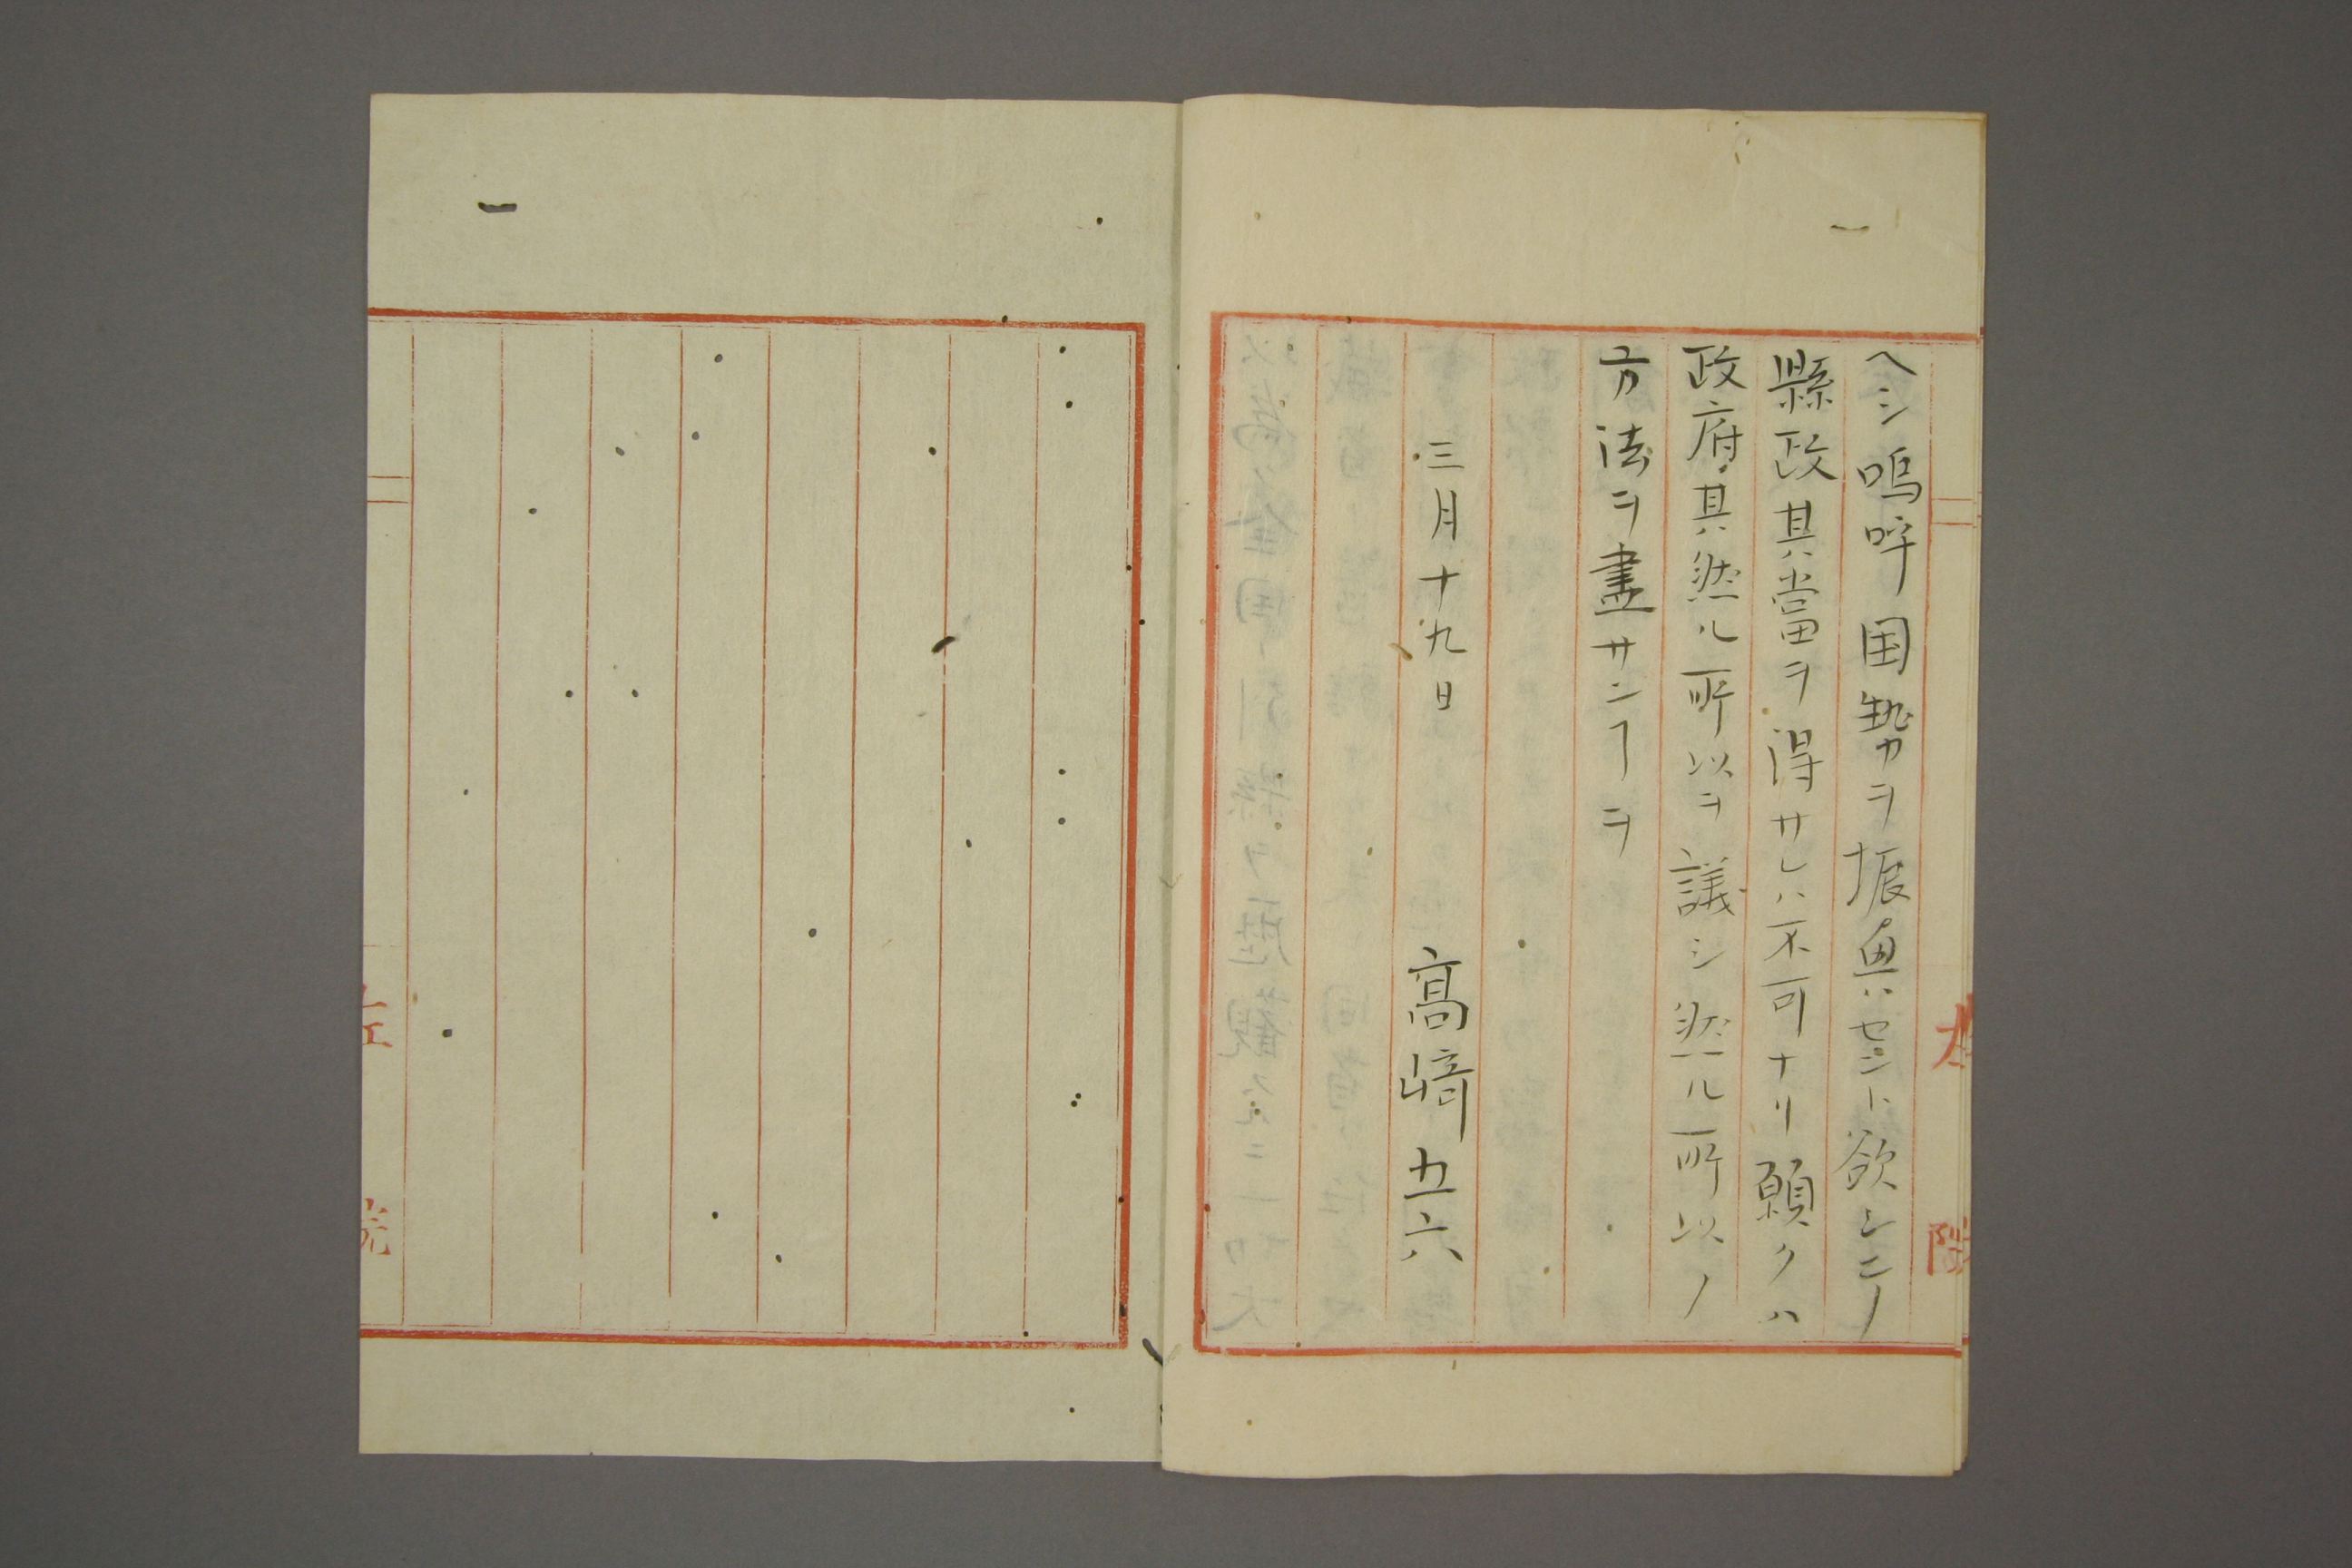 ヘシ嗚呼国勢ヲ振興セント欲シテノ
縣政其當ヲ得サレハ不可ナリ願クハ
政府其然ル所以ヲ議シ然ル所以ノ
方法ヲ盡サンヿヲ
三月十九日 高﨑五六
左院